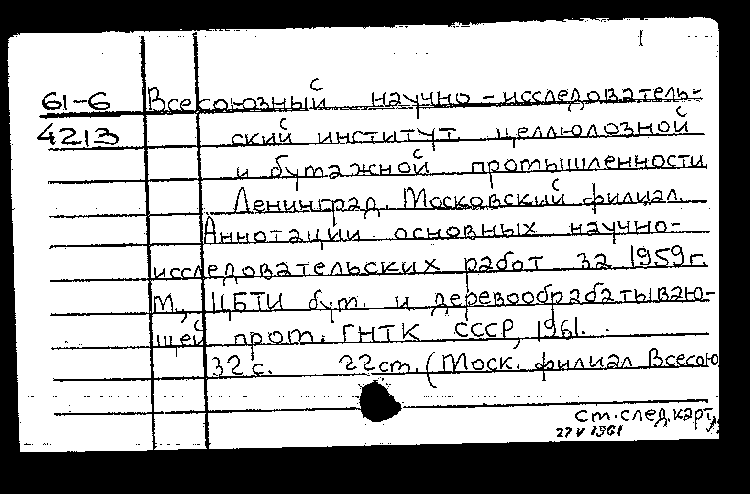 61-6 Всесоюзный научно-исследователь-
4213 ский институт целлюлозной
и бумажной промышленности
Ленинград. Московский филиал.
Аннотации основных научно-
исследовательских работ за 1959 г.
М., ЦБТИ бум. и деревообрабатываю-
щей пром. ГНТК СССР, 1961.
32 с. 22 см. (Моск. филиал Всесою
см. след. карт.
27 V 1961